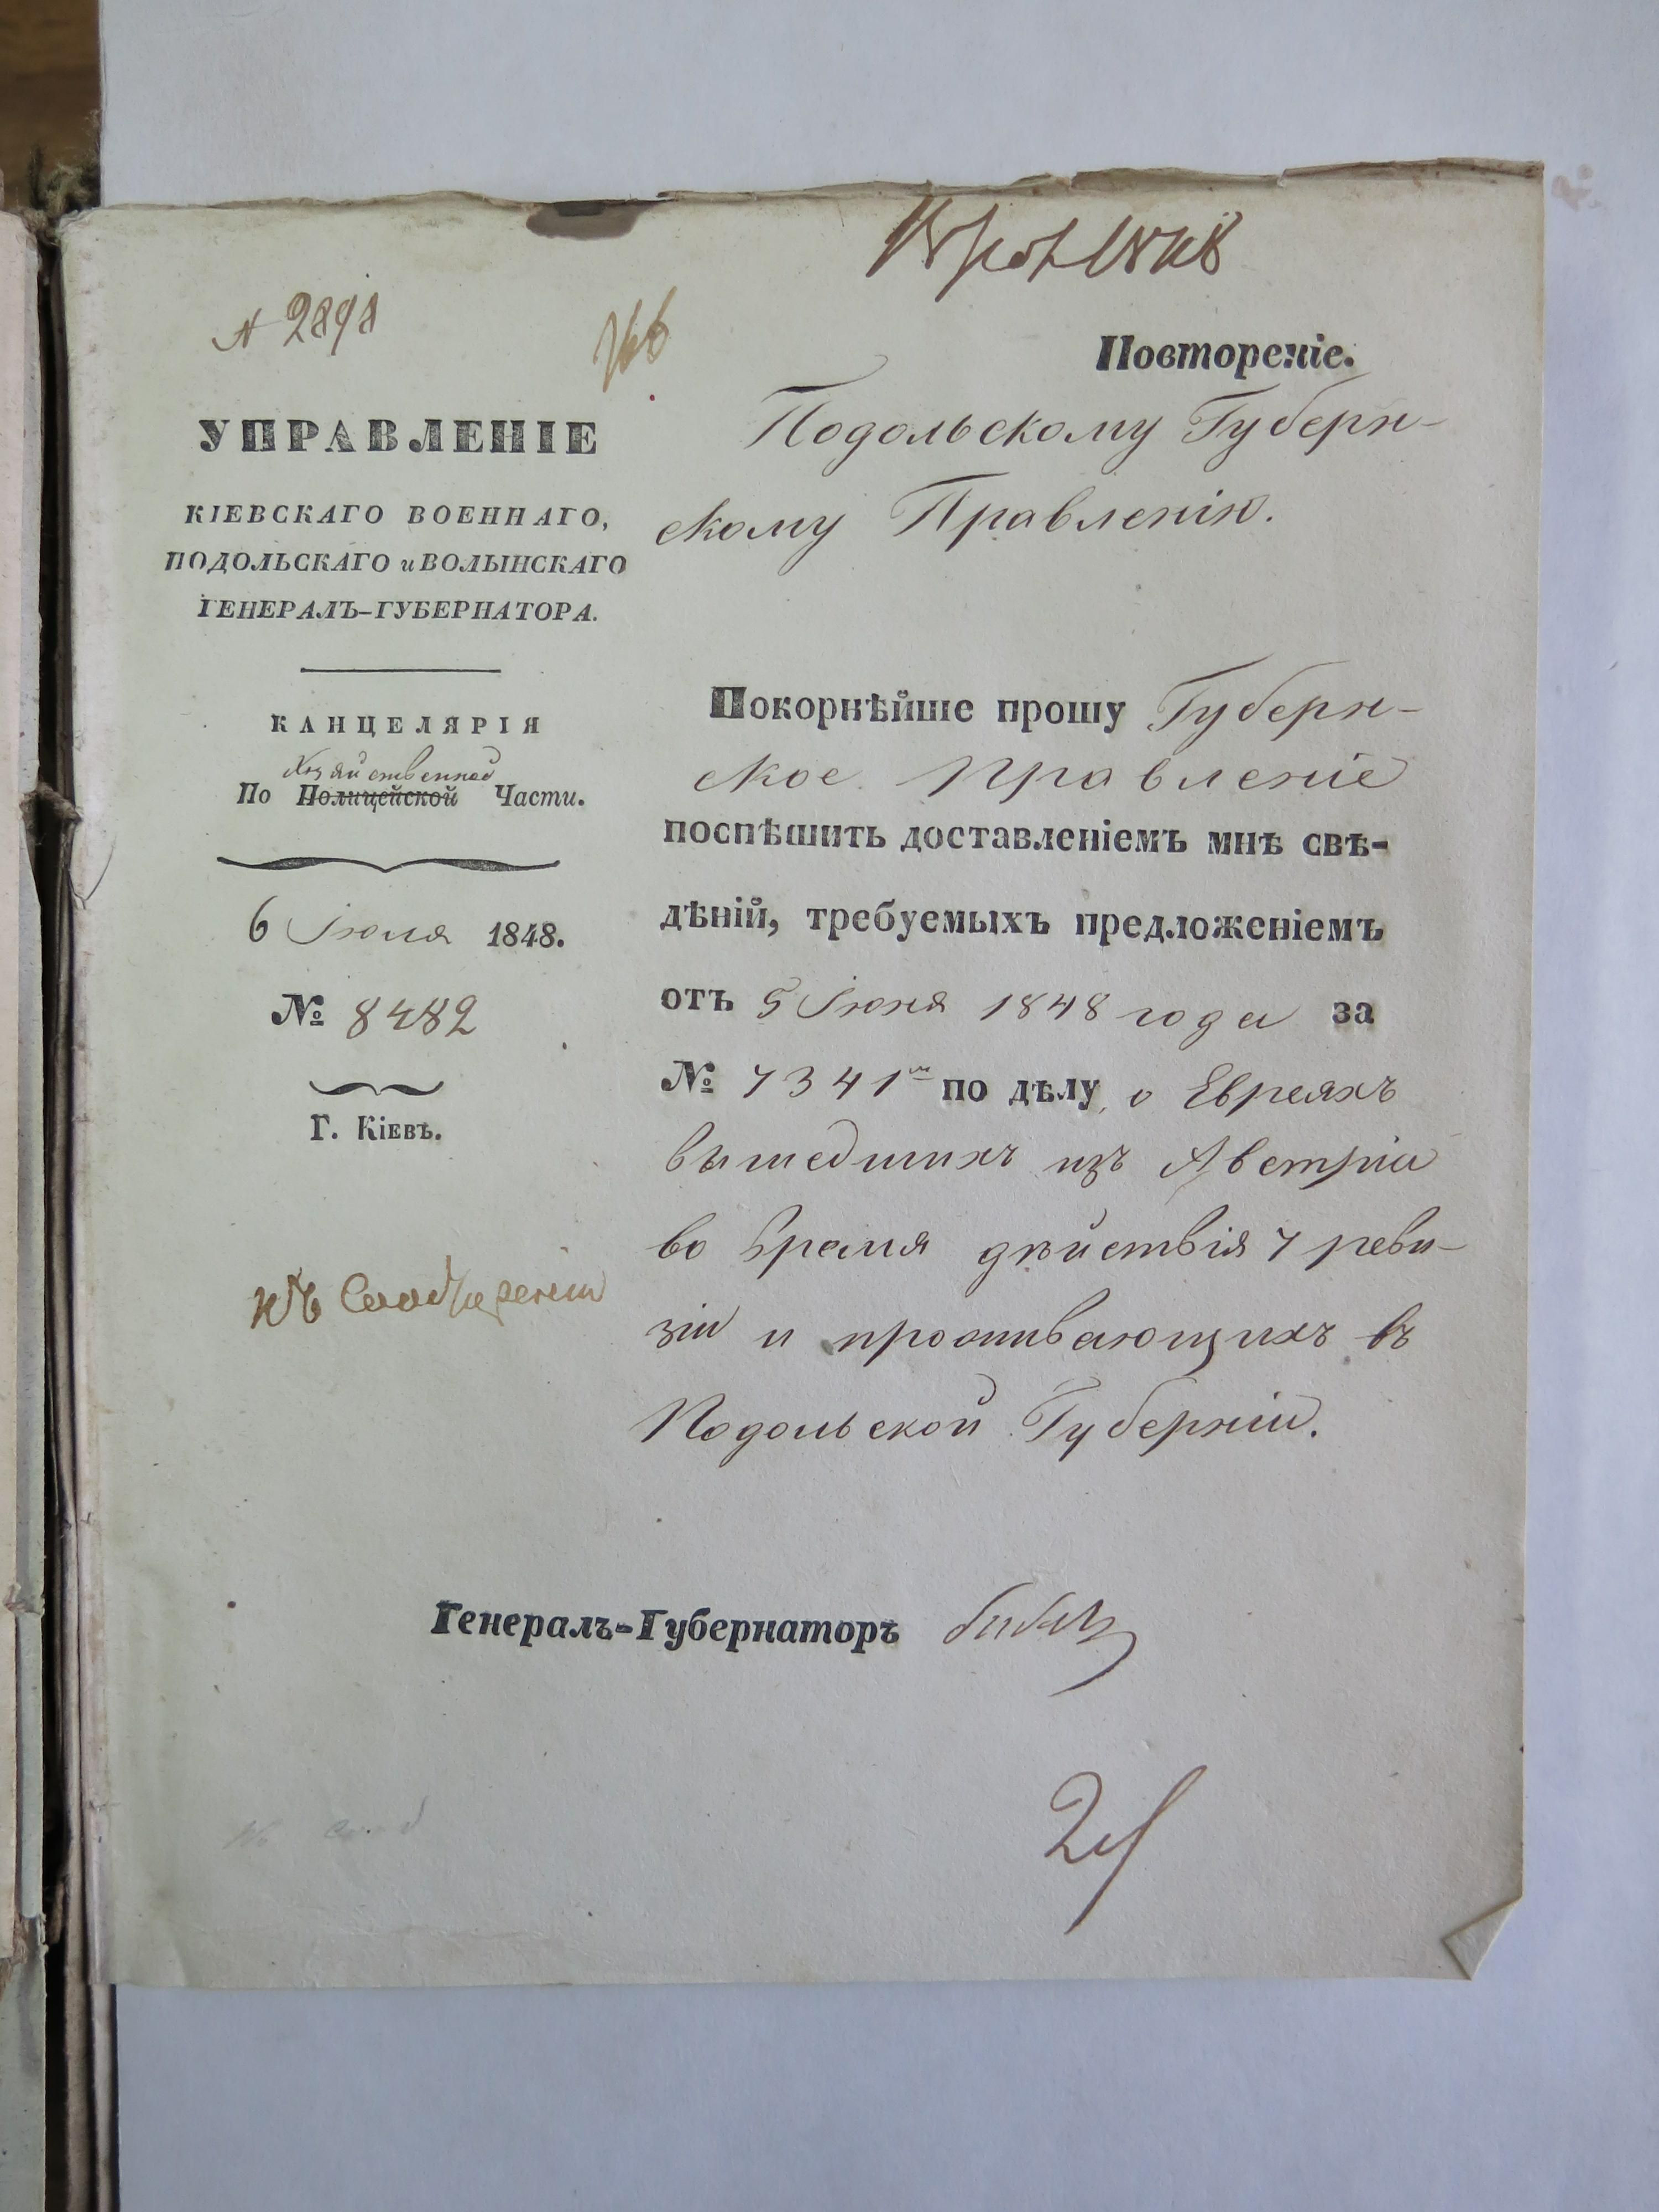 № 2898
УПРАВЛЕНІЕ
КІЕВСКАГО ВОЕННАГО,
ПОДОЛЬСКАГО и ВОЛЫНСКАГО
ГЕНЕРАЛЪ-ГУБЕРНАТОРА.
КАНЦЕЛЯРІЯ
Хозяйственной
По Полицейской Части.
6 Іюля 1848.
№ 8482
Г. Кіевъ.
Къ Соображенію
Повтореніе.
Подольскому Губерн-
скому Правленію.
Покорнѣйше прошу Губерн-
ское Правленіе
поспѣшить доставленіемъ мнѣ свѣ-
дѣній, требуемыхъ предложеніемъ
отъ 5 Іюня 1848 года за
№ 7341 по дѣлу о Евреяхъ
вышедшихъ изъ Австріи
во время дѣйствія 7 реви-
зіи и проживающихъ въ
Подольской Губерніи.
Генералъ-Губернаторъ Бибиковъ